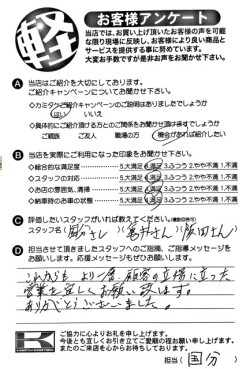 軽
お客様アンケート
当店では、お買い上げ頂いたお客様の声を可能
な限り現場に反映し、お客様により良い商品と
サービスを提供する事に努めています。
大変お手数ですが是非お声をお聞かせ下さい。
A 当店はご紹介を大切にしております。
ご紹介キャンペーンについてお聞かせ下さい。
◇カミタケご紹介キャンペーンのご説明はありましたでしょうか
はい いいえ
◇具体的にご紹介頂ける方とのご関係をお聞かせ頂け ますでしょうか
ご親族 ご友人 職場の方 機会があれば紹介したい
B 当店を実際にご利用になった印象をお聞かせ下さい。
◇総合的な満足度 5.大満足 4.満足 3.ふつう 2.やや不満 1.不満
◇スタッフの対応 5.大満足 4.満足 3.ふつう 2.やや不満 1.不満
◇お店の雰囲気、清掃 5.大満足 4.満足 3.ふつう 2.やや不満 1.不満
◇納車時のお車の状態 5.大満足 4.満足 3.ふつう 2.やや不満 1.不満
C 評価したいスタッフがいれば教えてください。(複数回答可)
スタッフ名 (国分さん)(亀井さん)(阪田さん)
D 担当させて頂きましたスタッフへのご指摘、ご指導メッセージを
お願いします。応援メッセージもぜひお願いします。
これからも より一層 顧客の立場に立った
営業を宜しくお願い致します。
ありがとうございました。
ご協力に心よりお礼を申し上げます。
今後とも宜しくお引き立てご愛顧の程お願い申し上げます。
またのご来店を心からお待ちしております。
担当(国分)